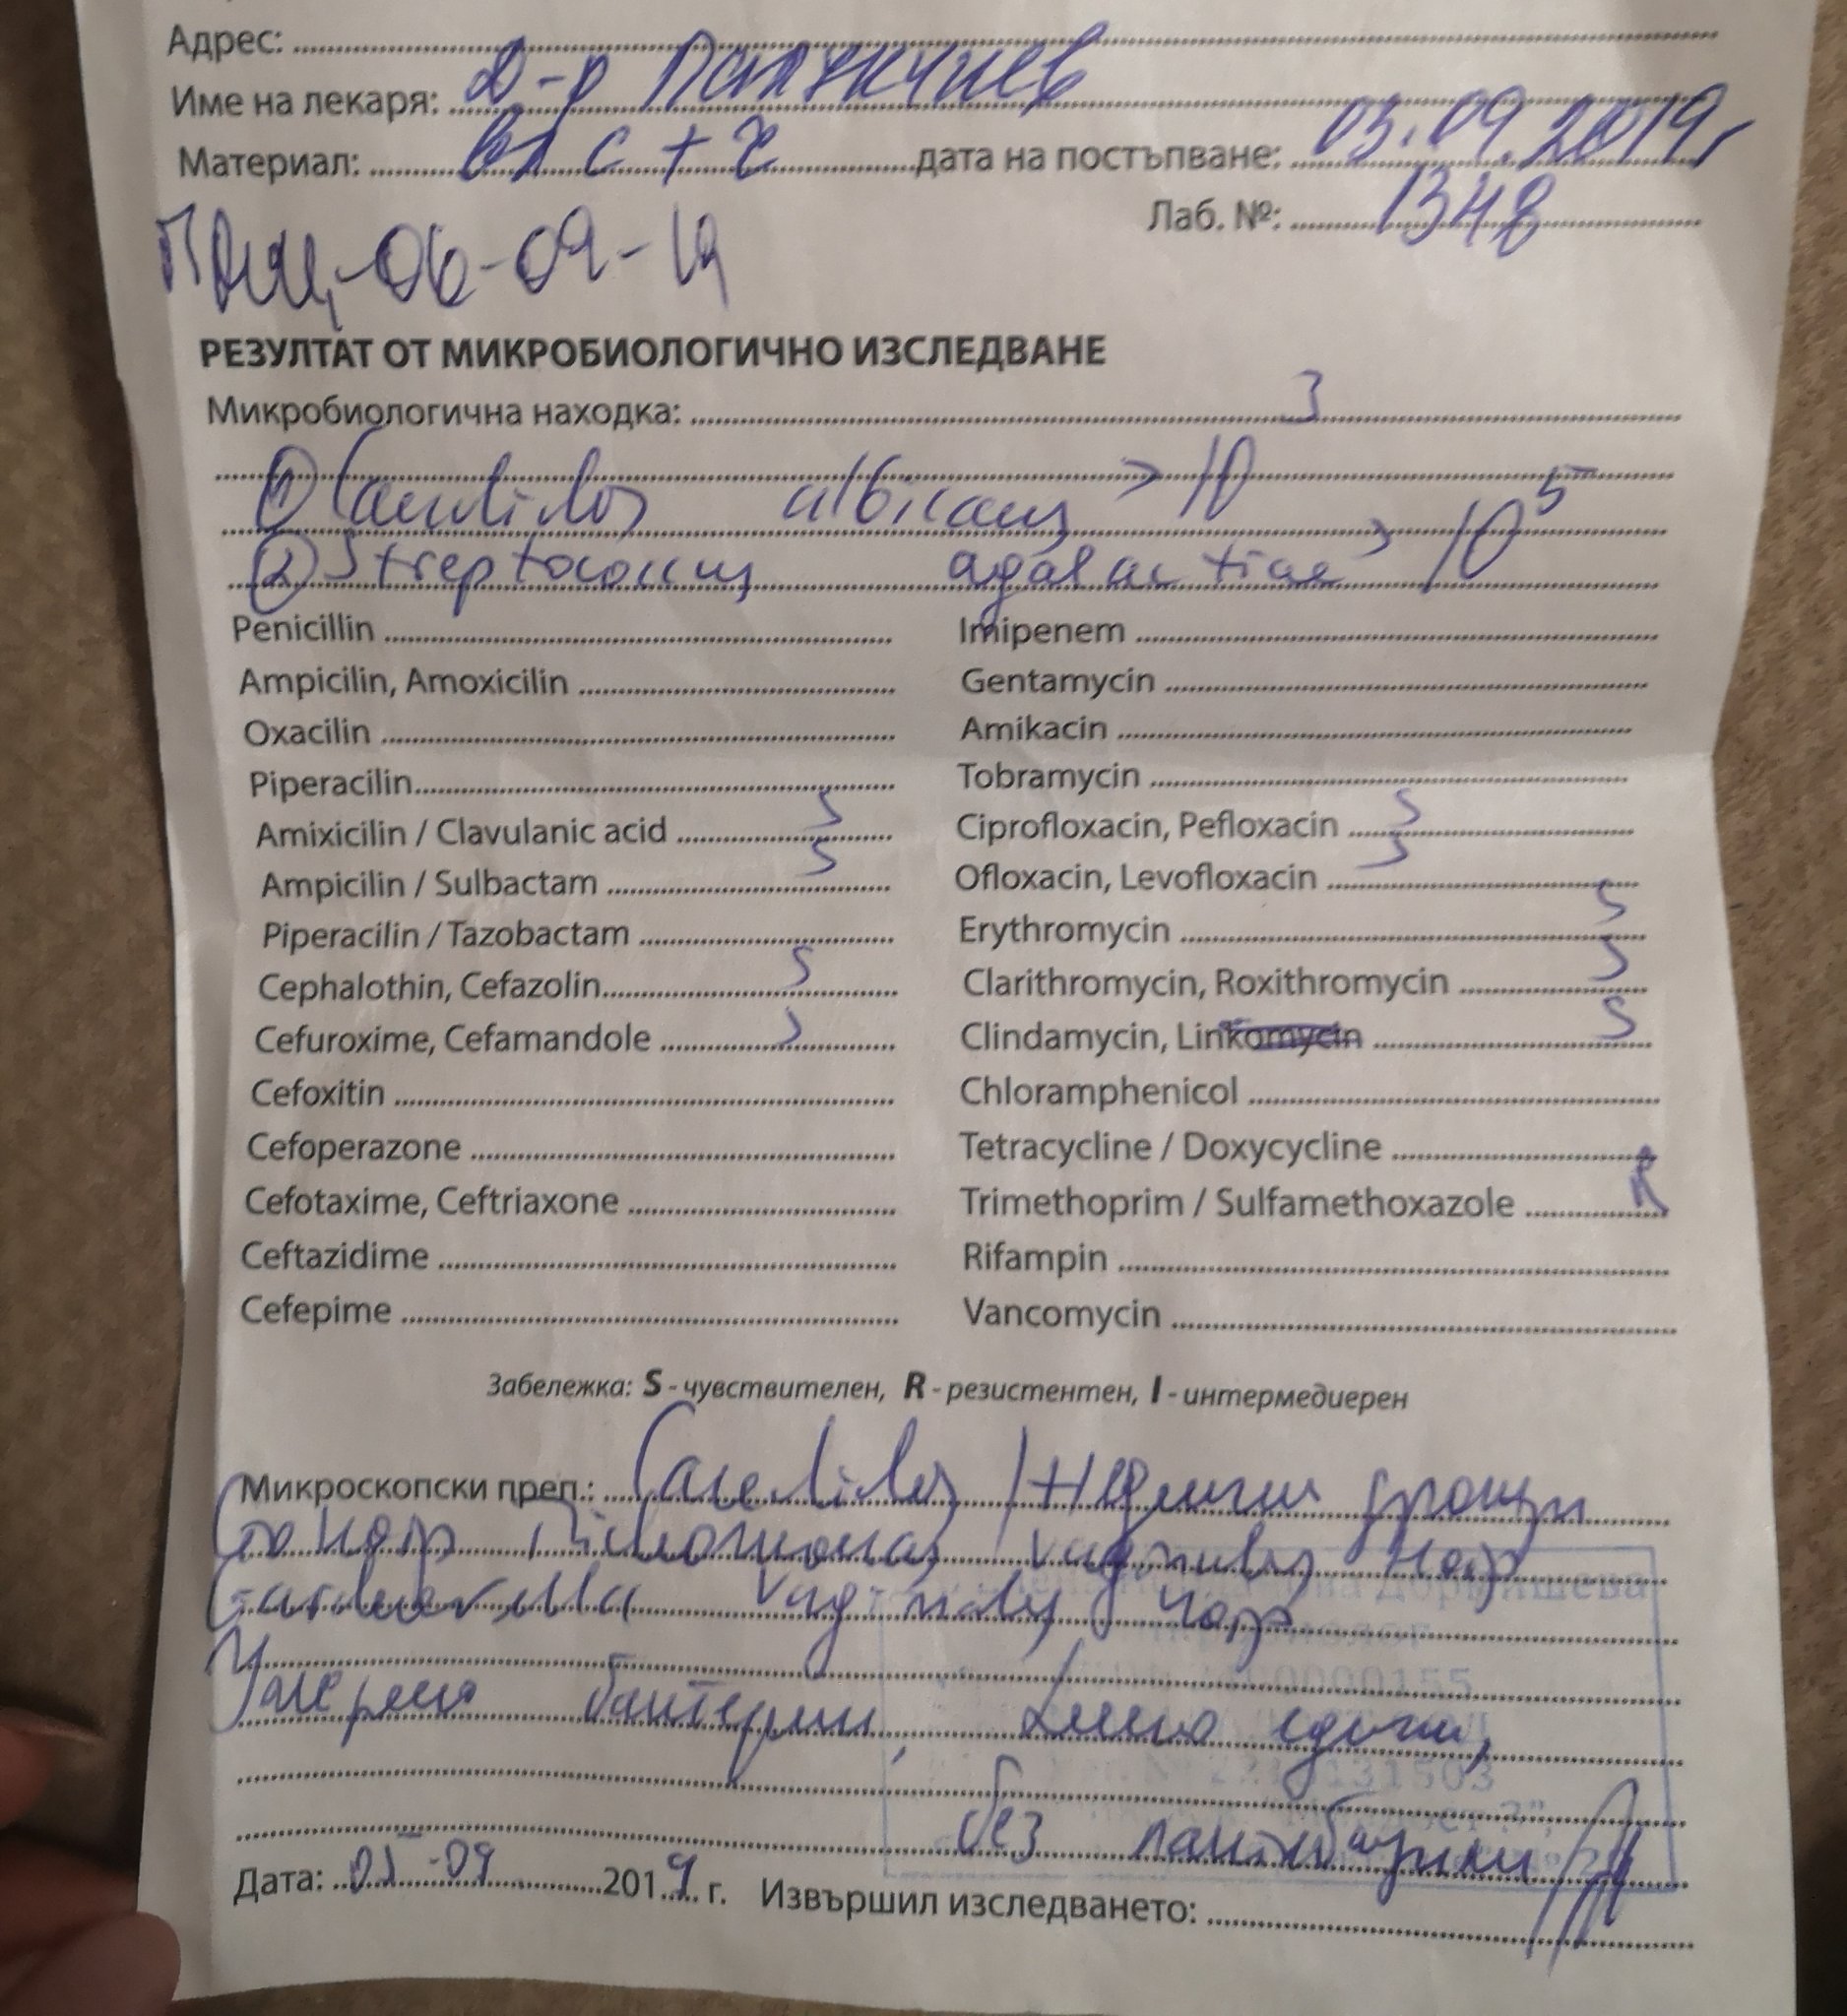 Адрес:
Име на лекаря: Д-р
Материал: вл с + ж дата на постъпване: 03.09.2019г
Лаб. №: 1348
06-09-19
РЕЗУЛТАТ ОТ МИКРОБИОЛОГИЧНО ИЗСЛЕДВАНЕ
Микробиологична находка:
① Candida albicans > 10³
② Streptococcus agalactiae > 10⁵
Penicillin Imipenem
Ampicilin, Amoxicilin Gentamycin
Oxacilin Amikacin
Piperacilin Tobramycin
Amixicilin / Clavulanic acid S Ciprofloxacin, Pefloxacin S
Ampicilin / Sulbactam S Ofloxacin, Levofloxacin S
Piperacilin / Tazobactam Erythromycin S
Cephalothin, Cefazolin S Clarithromycin, Roxithromycin S
Cefuroxime, Cefamandole S Clindamycin, Linkomycin S
Cefoxitin Chloramphenicol
Cefoperazone Tetracycline / Doxycycline
Cefotaxime, Ceftriaxone Trimethoprim / Sulfamethoxazole R
Ceftazidime Rifampin
Cefepime Vancomycin
Забележка: S - чувствителен, R - резистентен, I - интермедиерен
Микроскопски преп.: Candida /+
Trichomonas vaginalis
Gardnerella vaginalis
Умерено бактерии, Левко единични,
без лактобацили
Дата: 05-09 2019 г. Извършил изследването: